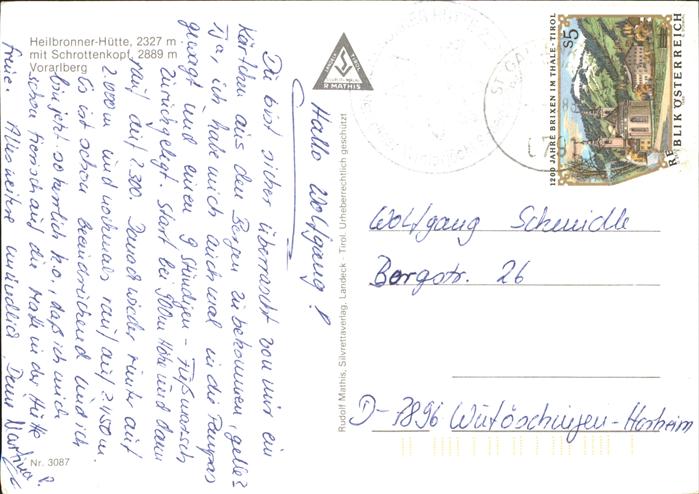 Heilbronner-Hütte, 2327 m
mit Schrottenkopf, 2889 m
Vorarlberg
Hallo Wolfgang!
Du bist sicher überrascht von mir ein
Kärtchen aus den Bergen zu bekommen, gelle?
Tja, ich habe mich auch mal in die Pampas
gewagt und einen 9 stündigen - Fußmarsch
zurückgelegt. Start bei 900m Höhe und dann
rauf auf 2300. Danach wieder runter auf
2000m und nochmals rauf auf 2450m.
Es ist schon beeindruckend und ich
bin jetzt so herrlich k.o., daß ich mich
schon tierisch auf die Matte in der Hütte
freue. Alles weitere mündlich, Deine Martina
Nr. 3087
R MATHIS
Rudolf Mathis, Silvrettaverlag, Landeck - Tirol. Urheberrechtlich geschützt
S 5
1200 JAHRE BRIXEN IM THALE · TIROL
REPUBLIK ÖSTERREICH
Wolfgang Schmidle
Bergstr. 26
D-7896 Wutöschingen-Horheim